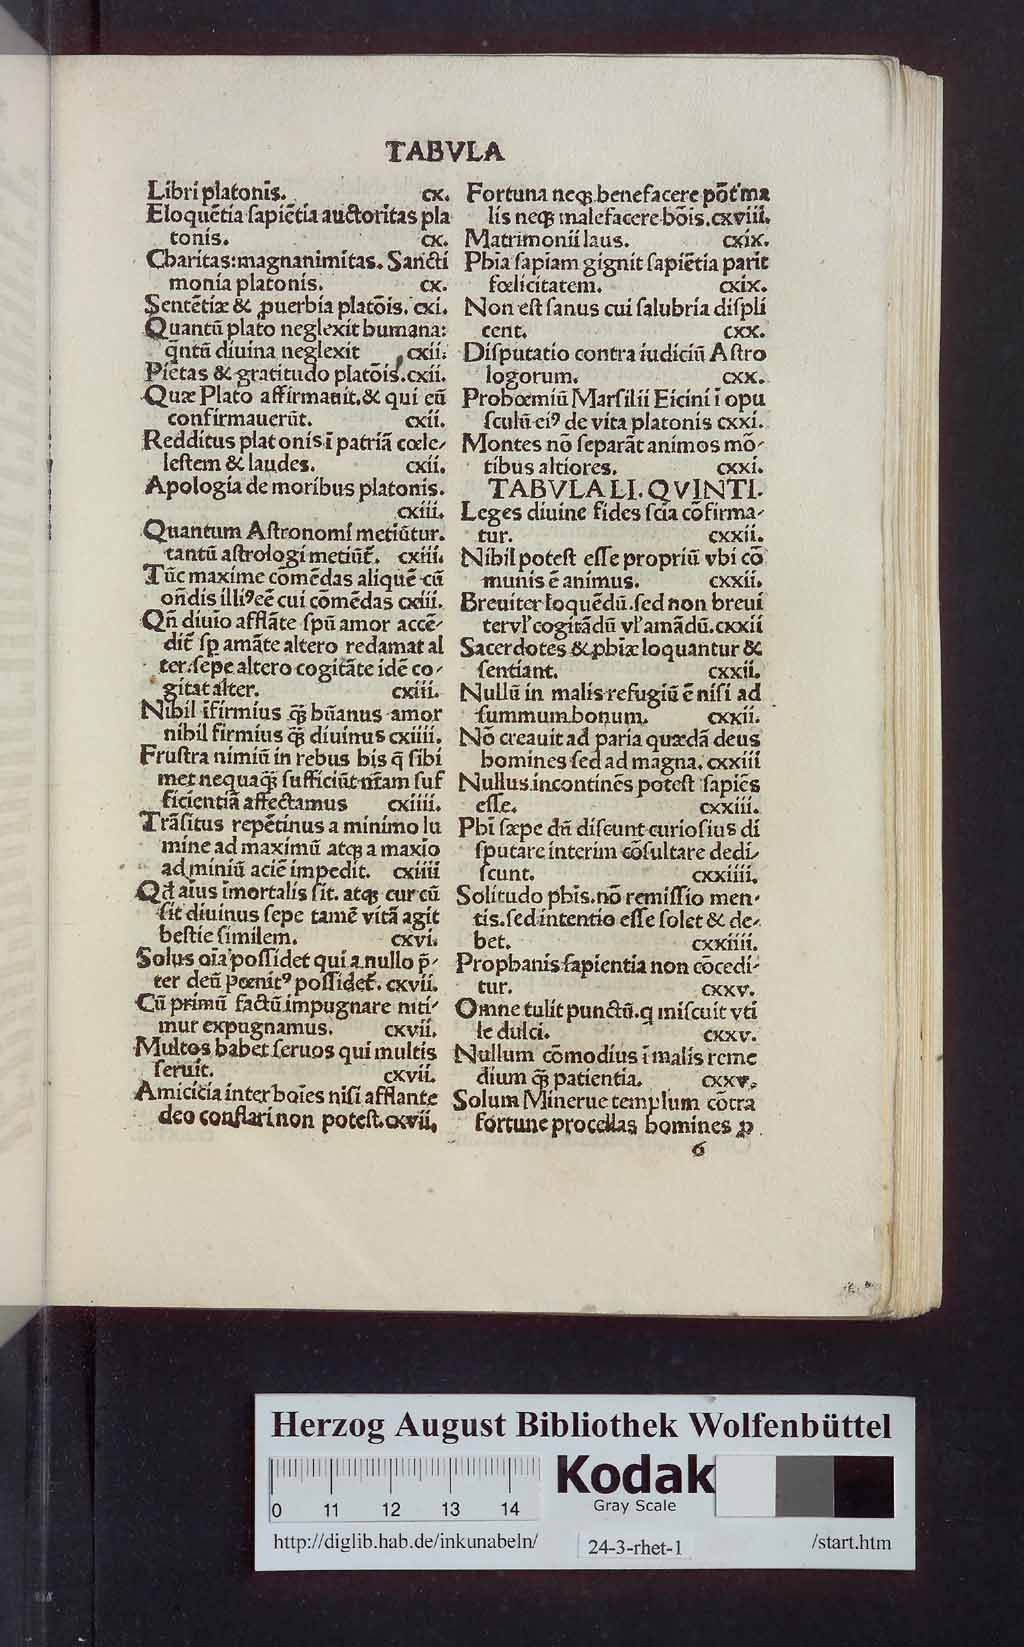 TABVLA
Libri platonis. cx.
Eloquētia sapiētia auctoritas pla
tonis. cx.
Charitas:magnanimitas. Sancti
monia platonis. cx.
Sentētiæ & ꝓuerbia platōis. cxi.
Quantū plato neglexit humana:
q̄ntū diuina neglexit cxii.
Pietas & gratitudo platōis.cxii.
Quæ Plato affirmauit.& qui eū
confirmauerūt. cxii.
Redditus platonis ī patriā cœle-
lestem & laudes. cxii.
Apologia de moribus platonis.
cxiii.
Quantum Astronomi metiūtur.
tantū astrologi metiūt̄. cxiii.
Tūc maxime comēdas aliquē cū
on̄dis illiꝰ eē cui cōmēdas cxiii.
Qn̄ diuio afflāte spū amor accē-
dit̄ sꝑ amāte altero redamat al
ter. sepe altero cogitāte idē co-
gitat alter. cxiii.
Nihil īfirmius q̄ꝫ hūanus amor
nihil firmius q̄ꝫ diuinus cxiiii.
Frustra nimiū in rebus his q̄ sibi
met nequaq̄ꝫ sufficiūt nr̄am suf
ficientiā affectamus cxiiii.
Trāsitus repētinus a minimo lu
mine ad maximū atqꝫ a maxīo
ad miniū aciē impedit. cxiiii
Qđ aīus īmortalis sit. atqꝫ cur cū
sit diuinus sepe tamē vitā agit
bestie similem. cxvi.
Solus oīa possidet qui a nullo p̄-
ter deū pœnitꝰ possidet̄. cxvii.
Cū primū factū impugnare niti-
mur expugnamus. cxvii.
Multos habet seruos qui multis
seruit. cxvii.
Amicicia inter hoīes nisi afflante
deo conflari non potest.cxvii.
Fortuna neqꝫ benefacere pōt ma
lis neqꝫ malefacere bōis.cxviii.
Matrimonii laus. cxix.
Phīa sapīam gignit sapiētia parit
fœlicitatem. cxix.
Non est sanus cui salubria displi
cent. cxx.
Disputatio contra iudiciū Astro
logorum. cxx.
Prohœmiū Marsilii Ficini ī opu
sculū eiꝰ de vita platonis cxxi.
Montes nō separāt animos mō-
tibus altiores. cxxi.
TABVLA LI. QVINTI.
Leges diuine fides scīa cōfirma-
tur. cxxii.
Nihil potest esse propriū vbi cō
munis ē animus. cxxii.
Breuiter loquēdū. sed non breui
ter vl' cogitādū vl' amādū.cxxii
Sacerdotes & phīæ loquantur &
sentiant. cxxii.
Nullū in malis refugiū ē nisi ad
summum bonum. cxxii.
Nō creauit ad parua quædā deus
homines sed ad magna. cxxiii
Nullus incontinēs potest sapiēs
esse. cxxiii.
Phī sæpe dū discunt curiosius di
sputare interim cōsultare dedi-
scunt. cxxiiii.
Solitudo phīs. nō remissio men-
tis. sed intentio esse solet & de-
bet. cxxiiii.
Prophanis sapientia non cōcedi-
tur. cxxv.
Omne tulit punctū. q miscuit vti
le dulci. cxxv.
Nullum cōmodius ī malis reme
dium q̄ꝫ patientia. cxxv.
Solum Minerue templum cōtra
fortune procellas homines ꝓ
6
Herzog August Bibliothek Wolfenbüttel
0 11 12 13 14
Kodak
Gray Scale
http://diglib.hab.de/inkunabeln/ 24-3-rhet-1 /start.htm